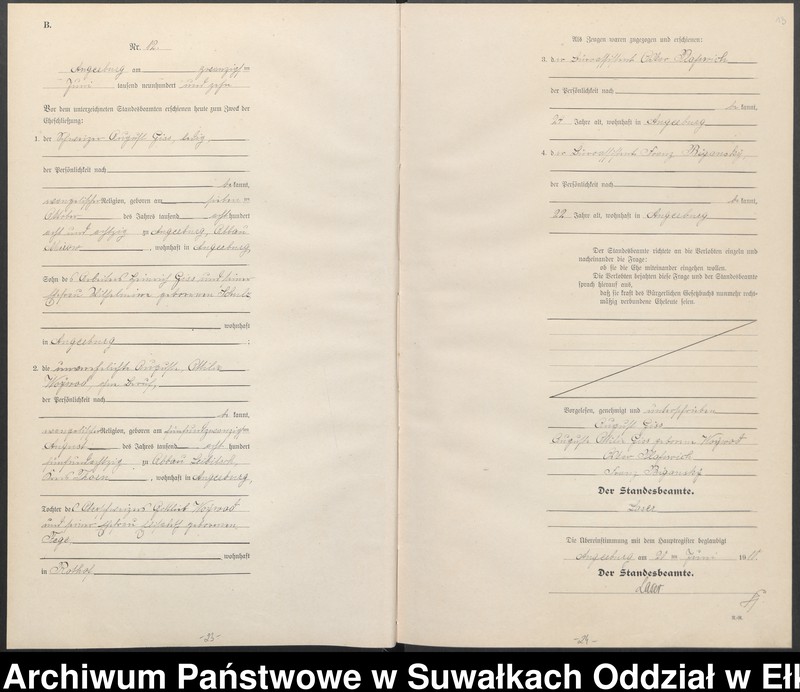 B.
Nr. 12.
Angerburg am zwanzigsten
Juni tausend neunhundert und zehn
Vor dem unterzeichneten Standesbeamten erschienen heute zum Zweck der
Eheschließung:
1. der Schweizer August Gies, ledig
der Persönlichkeit nach
be kannt,
evangelischer Religion, geboren am siebenten
Oktober des Jahres tausend achthundert
acht und achtzig zu Angerburg, Abbau
, wohnhaft in Angerburg,
Sohn des Arbeiters Heinrich Gies und seiner
Ehefrau Wilhelmine geborenen
wohnhaft
in Angerburg :
2. die unverehelichte Auguste, Ottilie
ohne Beruf,
der Persönlichkeit nach
be kannt,
evangelischer Religion, geboren am fünfundzwanzigsten
August des Jahres tausend acht hundert
fünfundachtzig zu Abbau
Kreis Thorn, wohnhaft in Angerburg,
Tochter des Oberschweizers Gottlieb
und seiner Ehefrau geborenen
wohnhaft
in Rothof
-23-
Als Zeugen waren zugezogen und erschienen:
3. der Büroassistent
der Persönlichkeit nach
be kannt,
27 Jahre alt, wohnhaft in Angerburg
4. der Büroassistent Franz Biganski,
der Persönlichkeit nach
be kannt,
22 Jahre alt, wohnhaft in Angerburg
Der Standesbeamte richtete an die Verlobten einzeln und
nacheinander die Frage:
ob sie die Ehe miteinander eingehen wollen.
Die Verlobten bejahten diese Frage und der Standesbeamte
sprach hierauf aus,
daß sie kraft des Bürgerlichen Gesetzbuchs nunmehr recht-
mäßig verbundene Eheleute seien.
Vorgelesen, genehmigt und unterschrieben
August Gies
Auguste Ottilie Gies geborene
Franz Biganski
Der Standesbeamte.
Laur
Die Übereinstimmung mit dem Hauptregister beglaubigt
Angerburg am 20 ten Juni 19
Der Standesbeamte.
Laur
-24-
Archiwum Państwowe w Suwałkach Oddział w Ełk